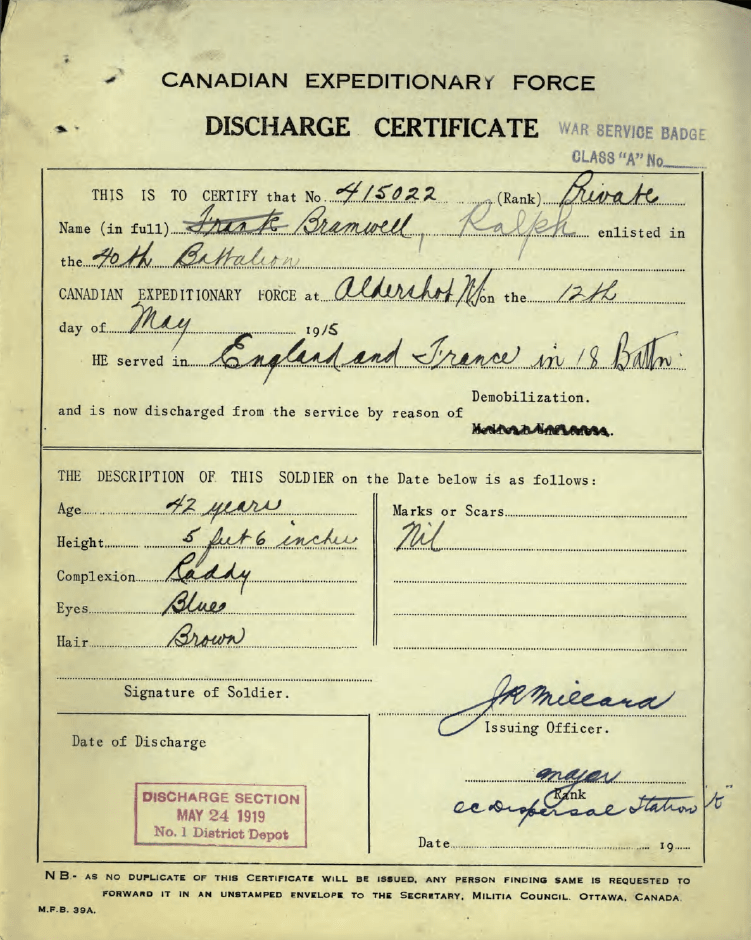 CANADIAN EXPEDITIONARY FORCE
DISCHARGE CERTIFICATE
WAR SERVICE BADGE
CLASS "A" No
THIS IS TO CERTIFY that No. 415022 (Rank) Private
Name (in full) Frank Bramwell, Ralph enlisted in
the 40th Battalion
CANADIAN EXPEDITIONARY FORCE at Aldershot NS on the 12th
day of May 1915
HE served in England and France in 18 Battn.
and is now discharged from the service by reason of Demobilization.
THE DESCRIPTION OF THIS SOLDIER on the Date below is as follows:
Age 42 years
Height 5 feet 6 inches
Complexion Ruddy
Eyes Blue
Hair Brown
Marks or Scars
Nil
Signature of Soldier.
JR Millard
Issuing Officer.
Date of Discharge
DISCHARGE SECTION
MAY 24 1919
No. 1 District Depot
Major
Rank
oc Dispersal Station "K"
Date 19
NB.- AS NO DUPLICATE OF THIS CERTIFICATE WILL BE ISSUED, ANY PERSON FINDING SAME IS REQUESTED TO
FORWARD IT IN AN UNSTAMPED ENVELOPE TO THE SECRETARY, MILITIA COUNCIL. OTTAWA, CANADA.
M.F.B. 39A.